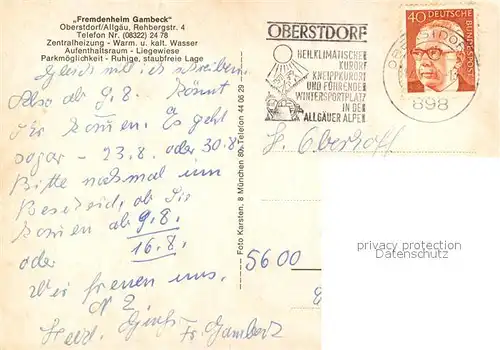 „Fremdenheim Gambeck"
Oberstdorf/Allgäu, Rehbergstr. 4
Telefon Nr. (08322) 24 78
Zentralheizung - Warm. u. kalt. Wasser
Aufenthaltsraum - Liegewiese
Parkmöglichkeit - Ruhige, staubfreie Lage
OBERSTDORF
HEILKLIMATISCHER
KURORT
KNEIPPKURORT
UND FÜHRENDER
WINTERSPORTPLATZ
IN DEN
ALLGÄUER ALPEN
OBERSTDORF
898
40 DEUTSCHE BUNDESPOST
Gleich will ich schreiben.
Also ab 9.8. könnt
Ihr kommen. Es geht
sogar - 23.8. oder 30.8.
Bitte nochmal um
Bescheid, ob Sie
kommen ab 9.8.
oder 16.8.
Wir freuen uns.
Herzl. Grüße Fr. Gambeck
Foto Karsten, 8 München 80, Telefon 44 06 29
Oberhoff
5600
copyright protected
www.ansichtskartenversand.com